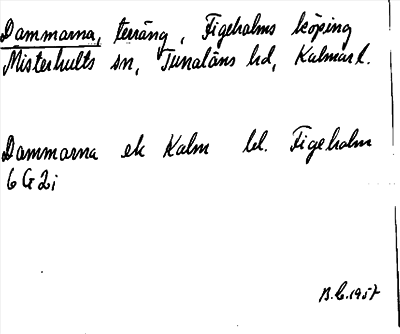 Dammarna, terräng, Figeholms köping
Misterhults sn, Tunaläns hd, Kalmar l.
Dammarna ek Kalm bl. Figeholm
6 G 2 i
1957